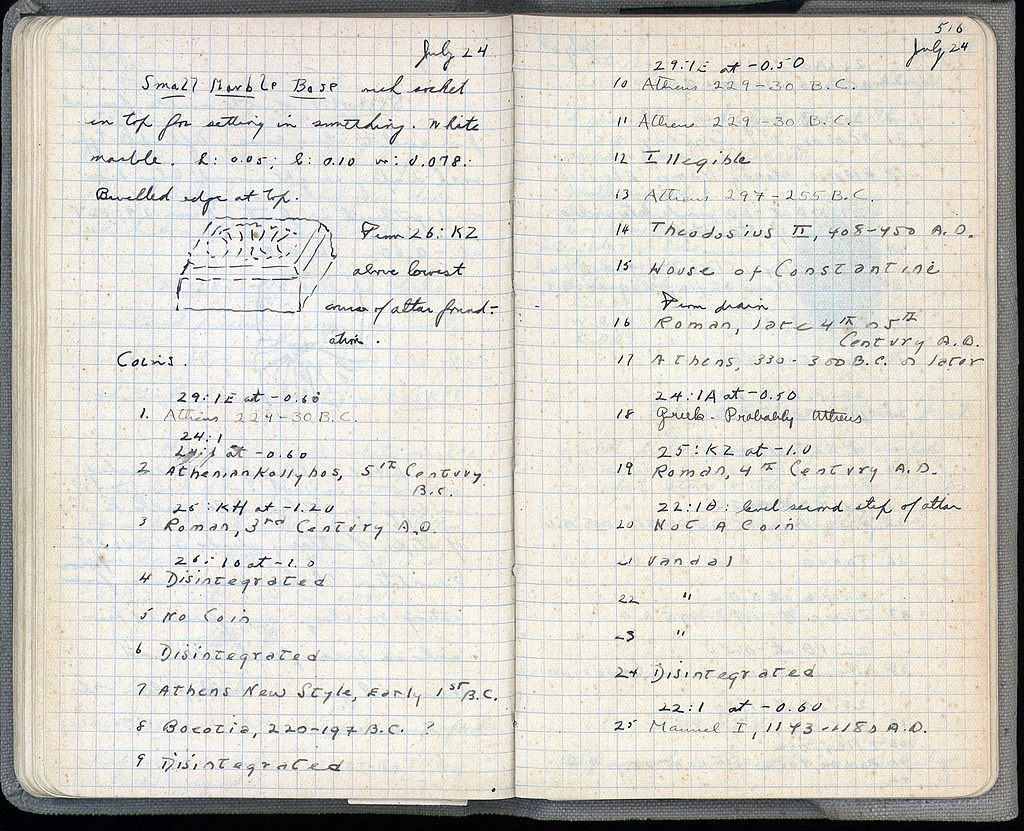 July 24
Small Marble Base with socket
in top for setting in something. White
marble. L: 0.05; l: 0.10 w: 0.078.
Bevelled edge at top.
From 26:KZ
above lowest
course of altar found-
ation.
Coins.
29:IE at -0.60
1. Athens 229-30 B.C.
24:1
at -0.60
2 Athenian Kollybos, 5th Century
B.C.
26:KH at -1.20
3 Roman, 3rd Century A.D.
26:10 at -1.0
4 Disintegrated
5 No Coin
6 Disintegrated
7 Athens New Style, Early 1st B.C.
8 Boeotia, 220-197 B.C. ?
9 Disintegrated
516
July 24
29:IE at -0.50
10 Athens 229-30 B.C.
11 Athens 229-30 B.C.
12 Illegible
13 Athens 297-255 B.C.
14 Theodosius II, 408-450 A.D.
15 House of Constantine
From drain
16 Roman, late 4th or 5th
Century A.D.
17 Athens, 330-300 B.C. or later
24:1A at -0.50
18 Greek. Probably Athens
25:KZ at -1.0
19 Roman, 4th Century A.D.
22:10: level second step of altar
20 Not A Coin
21 Vandal
22 "
23 "
24 Disintegrated
22:1 at -0.60
25 Manuel I, 1143-1180 A.D.